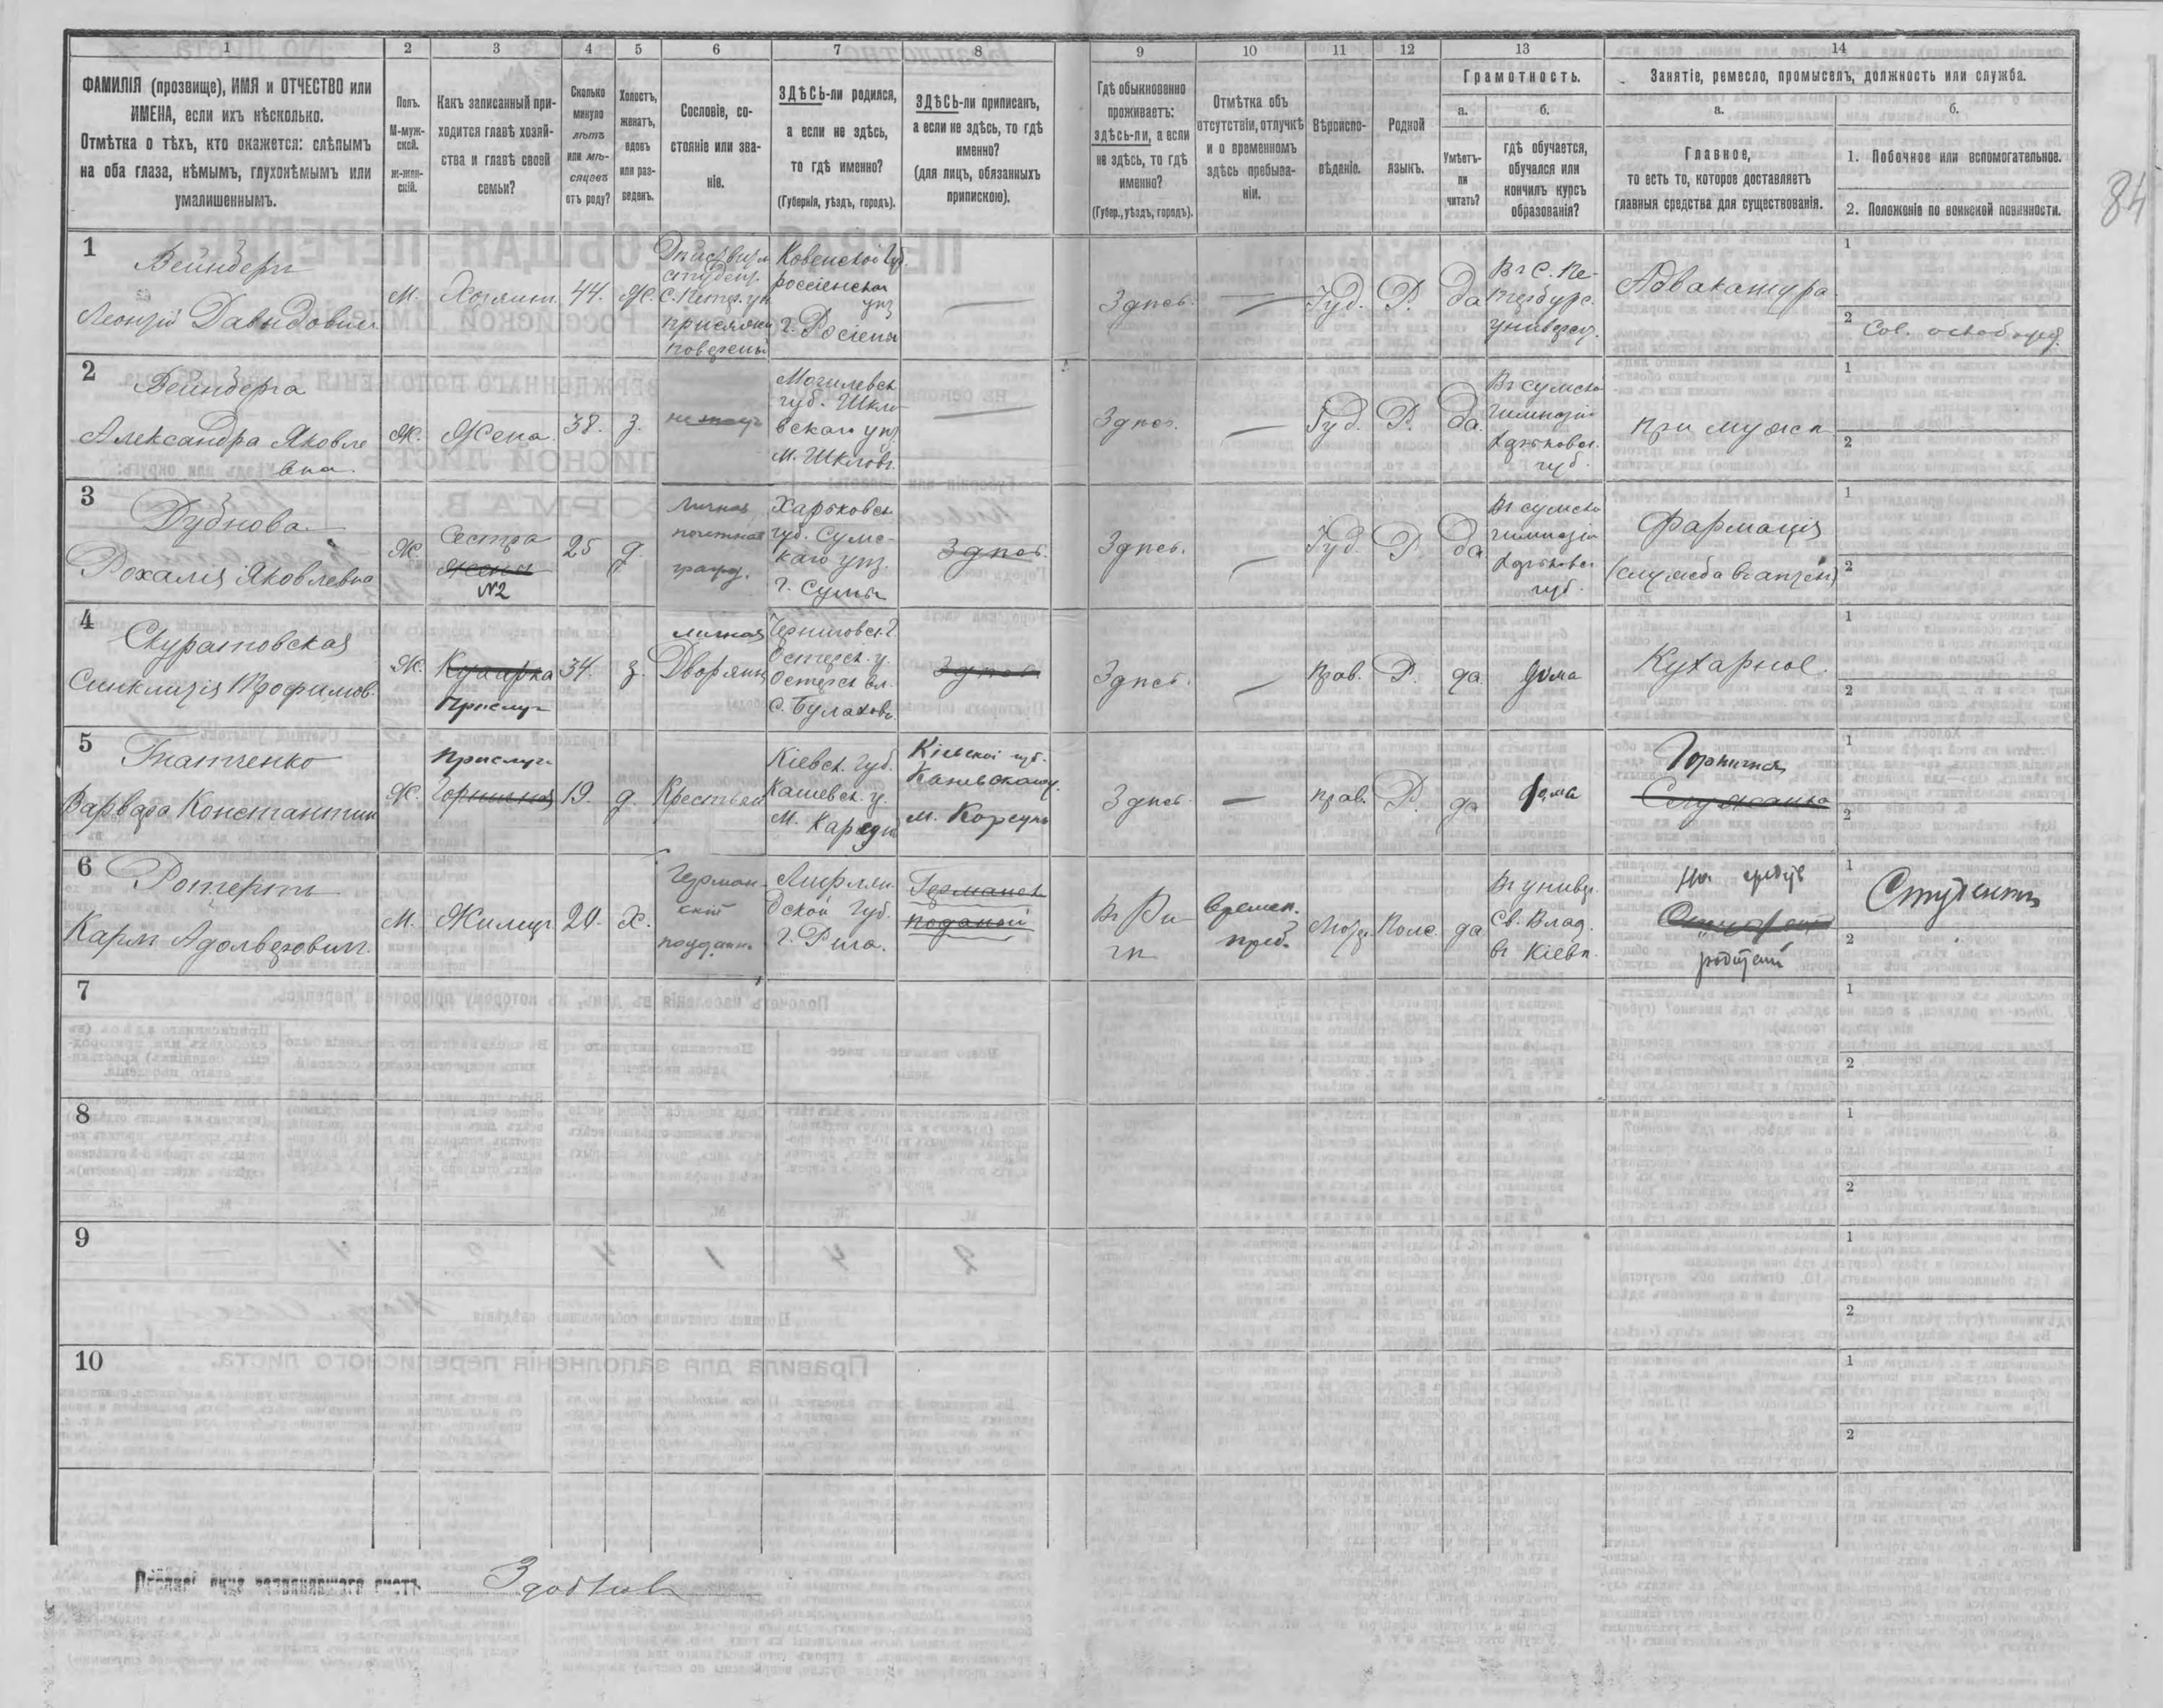 1 2 3 4 5 6 7 8 9 10 11 12 13 14
ФАМИЛІЯ (прозвище), ИМЯ и ОТЧЕСТВО или
ИМЕНА, если ихъ нѣсколько.
Отмѣтка о тѣхъ, кто окажется: слѣпымъ
на оба глаза, нѣмымъ, глухонѣмымъ или
умалишеннымъ.
Полъ.
М-муж-
ской.
Ж-жен-
скій.
Какъ записанный при-
ходится главѣ хозяй-
ства и главѣ своей
семьи?
Сколько
минуло
лѣтъ
или мѣ-
сяцевъ
отъ роду?
Холостъ,
женатъ,
вдовъ
или раз-
веденъ.
Сословіе, со-
стояніе или зва-
ніе.
ЗДѢСЬ-ли родился,
а если не здѣсь,
то гдѣ именно?
(Губернія, уѣздъ, городъ).
ЗДѢСЬ-ли приписанъ,
а если не здѣсь, то гдѣ
именно?
(для лицъ, обязанныхъ
припискою).
Гдѣ обыкновенно
проживаетъ:
здѣсь-ли, а если
не здѣсь, то гдѣ
именно?
(Губер., уѣздъ, городъ).
Отмѣтка объ
отсутствіи, отлучкѣ
и о временномъ
здѣсь пребыва-
ніи.
Вѣроиспо-
вѣданіе.
Родной
языкъ.
Грамотность.
а.
Умѣетъ-
ли
читать?
б.
гдѣ обучается,
обучался или
кончилъ курсъ
образованія?
Занятіе, ремесло, промыселъ, должность или служба.
а.
Главное,
то есть то, которое доставляетъ
главныя средства для существованія.
б.
1. Побочное или вспомогательное.
2. Положеніе по воинской повинности.
84
1
Вейнбергъ
Леонтій Давидович
М.
Хозяинъ
44.
Ж.
присяжн
Ковенской Губ.
россіенскаго
уѣз
г. Росіены
Здѣсь.
Іуд.
Р.
да
Въ С. Пе-
тербург.
универс.
Адвокатура
1
2
2
Вейнберга
Александра Яковле
вна.
Ж.
Жена.
38.
з.
Могилевск
губ. Шкло
вскаго уѣз
м. Шкловъ.
Здѣсь.
Іуд.
Р.
да.
Въ сумской
гимназіи
Харьковск.
губ.
при мужѣ
1
2
3
Дубнова
Рохалія Яковлевна
Ж.
Сестра
жены
№2
25
д.
личная
почетная
гражд.
Харьковск
губ. Сумс-
каго уѣз.
г. Сумы
Здѣсь.
Здѣсь.
Іуд.
Р.
да
Въ сумской
гимназіи
Харьковск
губ.
Фармація
(служба въ аптекѣ)
1
2
4
Скуратовская
Синклитія Трофимов.
Ж.
Кухарка
Прислуг
34.
з.
личная
Дворянк
Черниговск. г.
Остерск. у.
Остерск вл.
с. Булахов.
Здѣсь
Здѣсь.
Прав.
Р.
да.
дома
Кухарное.
1
2
5
Гнатченко
Варвара Константин
Ж.
Прислуг
Горничная
19.
д.
Крестьян
Кіевск. Губ.
Каневск. у.
Кіевской губ.
Каневскаго у.
м. Корсунь
Здѣсь
прав.
Р.
да
дома
Горничная
Служанка
1
2
6
Ротертъ
Карлъ Адольфовичъ.
М.
Жилец
20.
х.
Герман-
скій
подданн.
Лифлян-
дской Губ.
г. Рига.
Германск
поданой
Въ Ри-
гѣ
Времен.
преб.
Лютер.
да
Въ универ.
Св. Влад.
въ Кіевѣ.
На средст
родителей
1
Студентъ
2
7
1
2
8
1
2
9
1
2
10
1
2